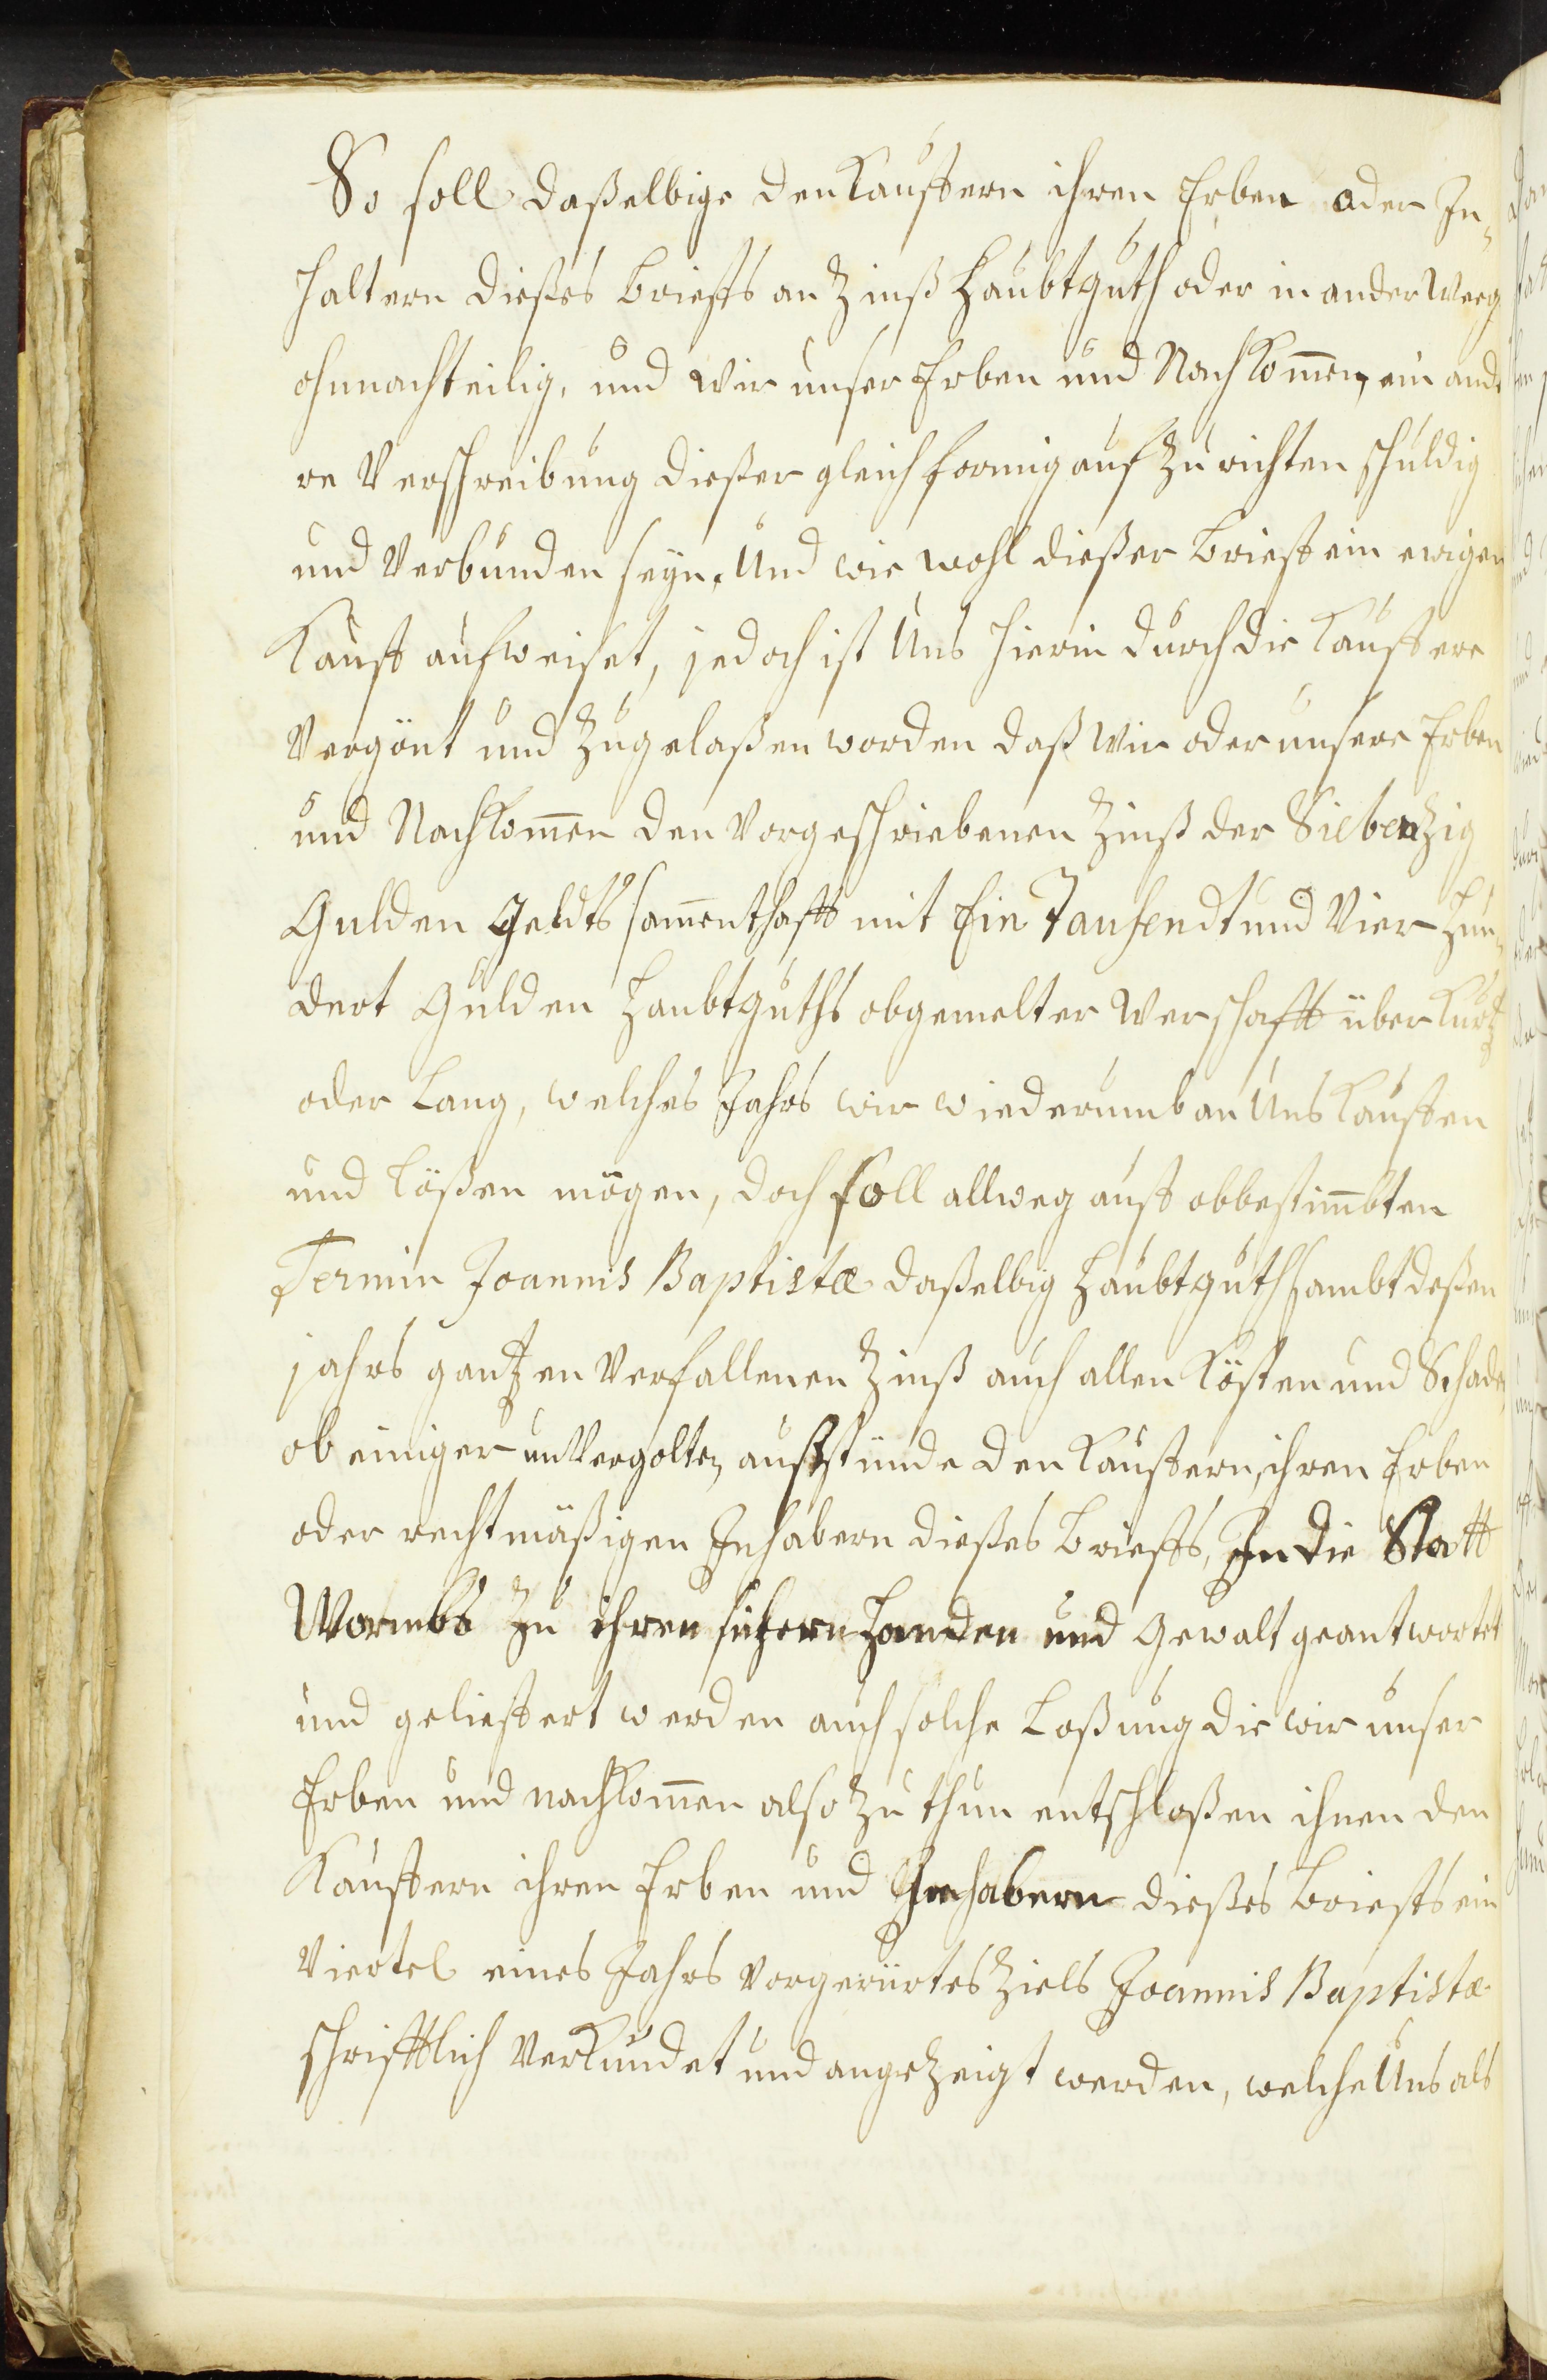 So soll daßelbige den Kauffern ihren Erben oder In„
haltern dießes Brieffs an Zinß Haubtguth oder in ander Weeg
ohnnachteilig, und wir unser Erben und Nachkom̅en, ein ande
re Verschreibung dießer gleichformig aufzurichten schuldig
und Verbunden seyn. Und wie wohl dießer Brieff ein ewigen
Kauff aufweiset, jedoch ist Uns hierin durch die Kauffere
Vergönt und Zugelaßen worden daß wir oder unsere Erben
und Nachkom̅en den Vorgeschriebenen Zinß der Siebenzig
Gulden Geldts sam̅enthafft mit Ein Tausendt und Vier Hun„
dert Gulden Haubtguths obgemelter Werschafft über Kurtz
oder Lang, welches Jahrs wir wiederumb an Uns Kauffen
und Lößen mögen, doch soll allweg auff obbestim̅bten
Termin Joannis Baptistæ daßelbig Haubtguth sambt deßen
jahrs gantzen Verfallenen Zinß auch allen Kösten und Schaden
ob einiger unVergolten außstünde den Kauffern, ihren Erben
oder rechtmäßigen Inhabern dießes Brieffs, In die Statt
Wormbs Zu ihren sichern Handen und Gewalt geantwortet
und gelieffert werden auch solche Loßung die wir unser
Erben und nachkom̅en also Zu thun entschloßen ihnen den
Kauffern ihren Erben und Inhabern dießes Brieffs ein
Viertel eines Jahrs Vorgerürtes Ziels Joannis Baptistæ
schrifftlich Verkundet und angezeigt werden, welche Uns als